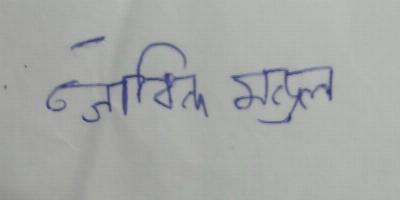 গোবিন্দ মন্ডল